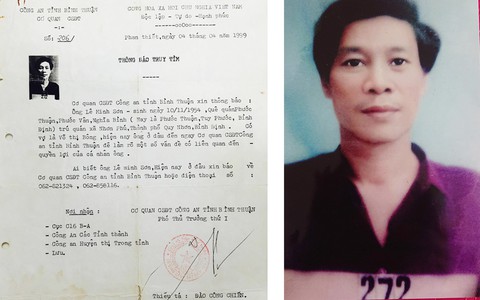 CÔNG AN TỈNH BÌNH THUẬN
CƠ QUAN CSĐT
Số: 206/
CỘNG HÒA XÃ HỘI CHỦ NGHĨA VIỆT NAM
Độc lập - Tự do - Hạnh phúc
-----oOo-----
Phan thiết, ngày 04 tháng 04 năm 1999
THÔNG BÁO TRUY TÌM
Cơ quan CSĐT Công an tỉnh Bình Thuận xin thông báo :
Ông Lê Minh Sơn - sinh ngày 10/11/1954 , Quê quán Phước
Thuận, Phước Vân, Nghĩa Bình ( Nay là Phước Thuận, Tuy Phước, Bình
Định) trú quán xã Nhơn Phú, Thành phố Quy Nhơn, Bình Định. Có
vợ là Võ Thị Bông, hiện nay ông ở đâu đến ngay Cơ quan CSĐT Công
an tỉnh Bình Thuận để làm rõ một số vấn đề có liên quan đến
quyền lợi của cá nhân ông.
Ai biết ông Lê Minh Sơn, Hiện nay ở đâu xin báo về
Cơ quan CSĐT Công an tỉnh Bình Thuận hoặc điện thoại số :
062-821324 , 062-858116.
Nơi nhận :
- Cục C16 B-A
- Công An Các Tỉnh thành
- Công an Huyện thị Trong tỉnh
- Lưu.
CƠ QUAN CSĐT CÔNG AN TỈNH BÌNH THUẬN
Phó Thủ Trưởng thứ I
Thiếu tá : BÁO CÔNG CHIẾN.
272